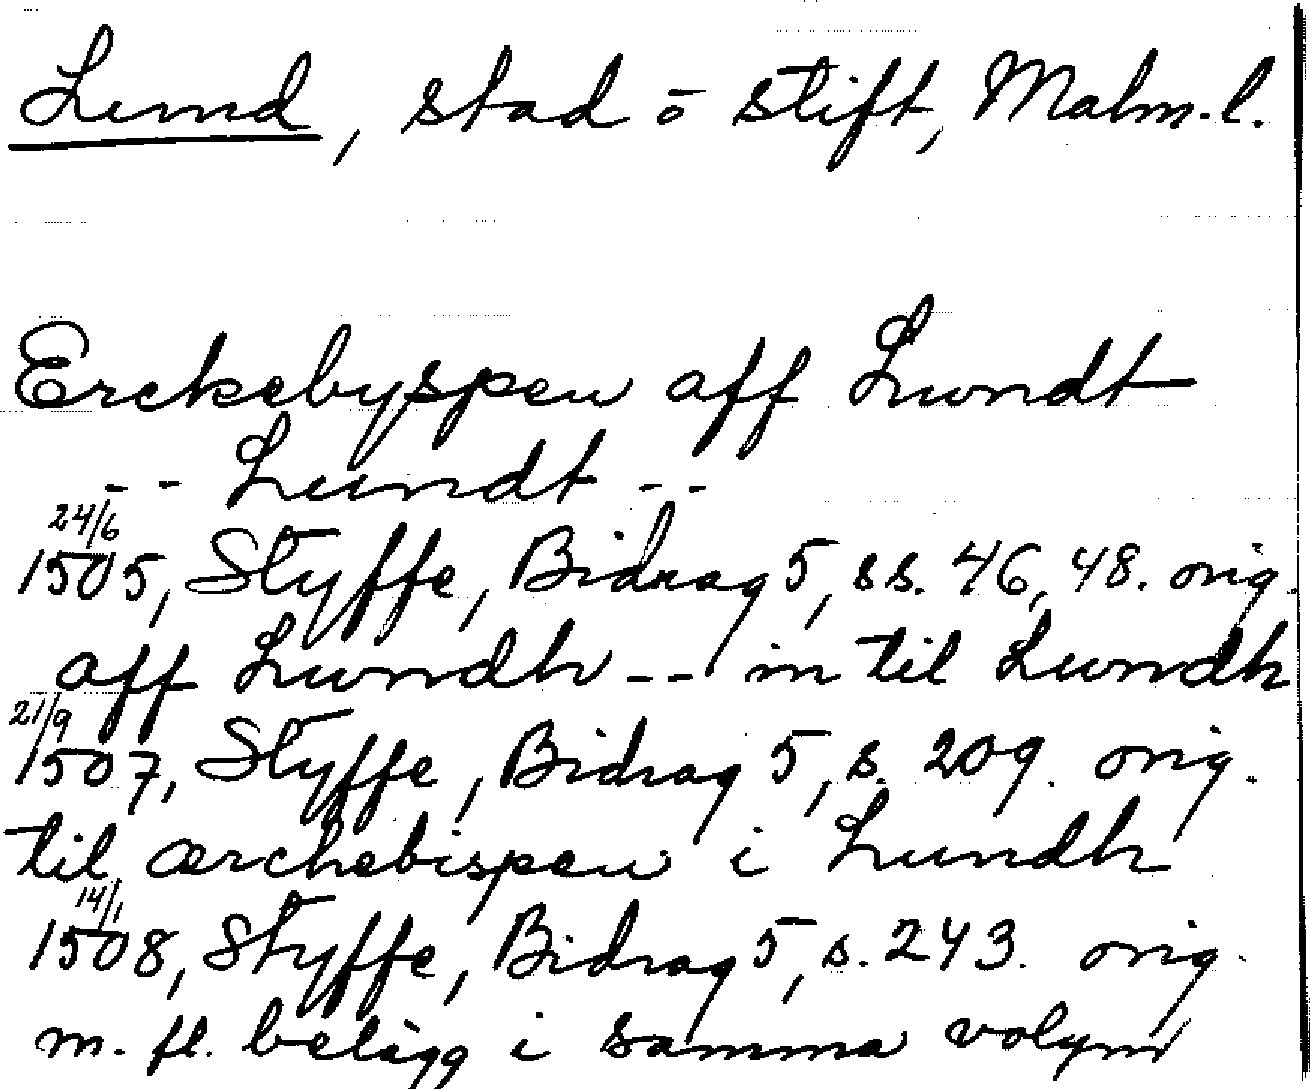 Lund, stad o stift, Malm.l.
Erckebyspen aff Lundt
-- Lundt --
24/6
1505, Styffe, Bidrag 5, ss. 46, 48. orig.
aff Lundh -- in til Lundh
21/9
1507, Styffe, Bidrag 5, s. 209. orig.
til ærchebispen i Lundh
14/1
1508, Styffe, Bidrag 5, s. 243. orig.
m. fl. belägg i samma volym